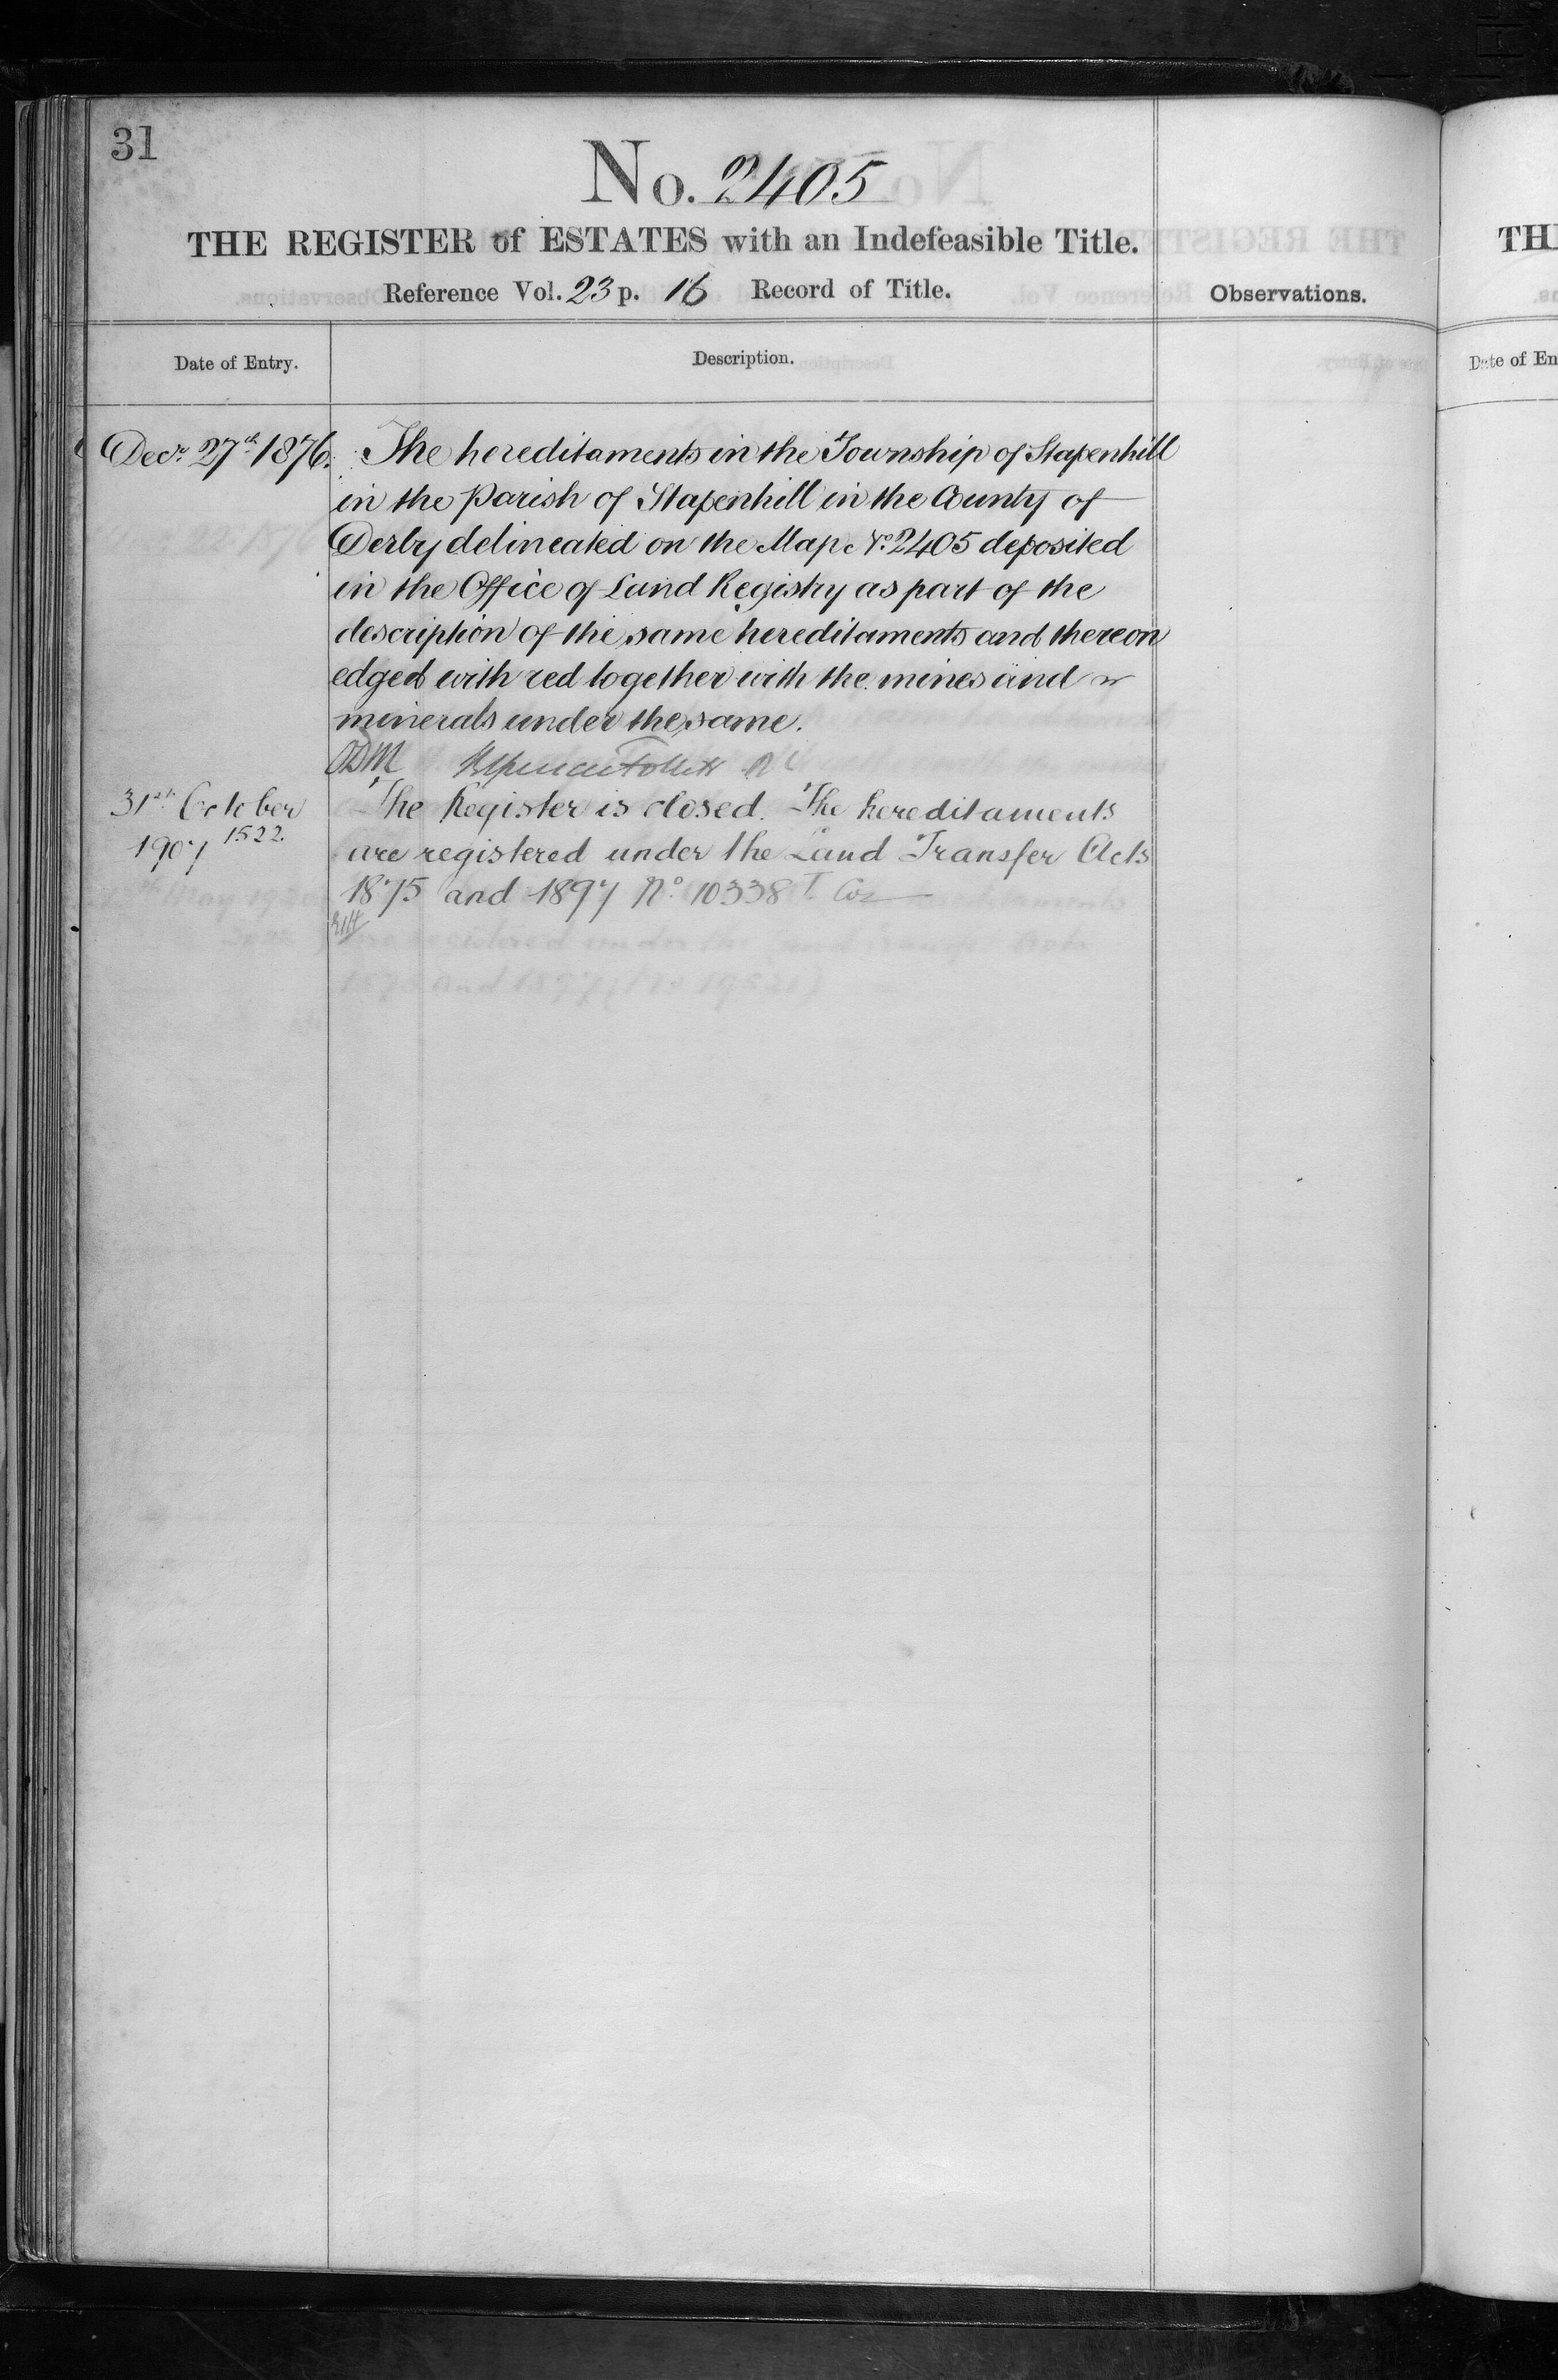 31
No. 2405
THE REGISTER of ESTATES with an Indefeasible Title.
Reference Vol. 23 p. 16 Record of Title.
Observations.
Date of Entry.
Description.
Decr. 27th 1876. The hereditaments in the Township of Stapenhill
in the Parish of Stapenhill in the County of
Derby delineated on the Map No. 2405 deposited
in the Office of Land Registry as part of the
description of the same hereditaments and thereon
edged with red together with the mines and
minerals under the same.
31st October The Register is closed. The hereditaments
1907 1522 are registered under the Land Transfer Acts
1875 and 1897 No 10338
TH
Date of En